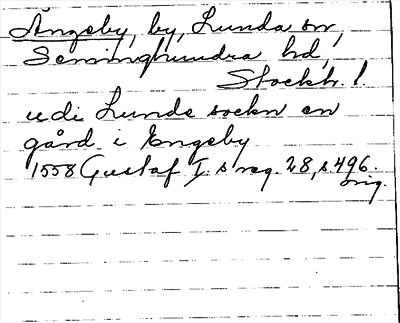 Ängeby, by, Lunda sn,
Seminghundra hd,
Stockh. l.
udi Lunde sockn en
gård i Engeby
1558 Gustaf I:s reg. 28, s. 496.
orig.